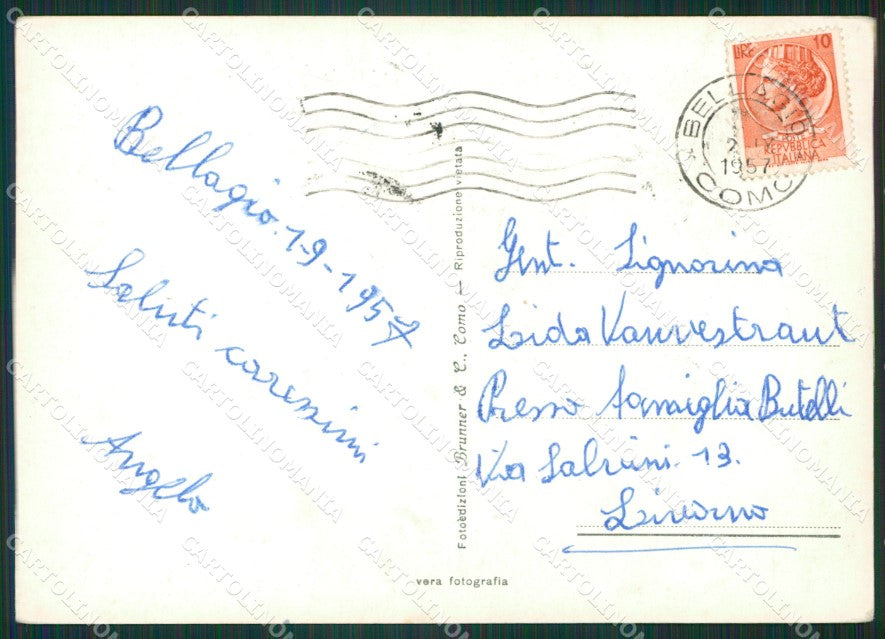 Bellagio. 1-9-1957
Saluti carissimi
Angelo
Fotoedizioni Brunner & C., Como — Riproduzione vietata
vera fotografia
LIRE 10
REPVBBLICA
ITALIANA
BELLAGIO
1957
COMO
Gent. Signorina
Lida Vanvestraut
Presso famiglia Butelli
Via Salvini. 13.
Livorno
CARTOLINOMANIA